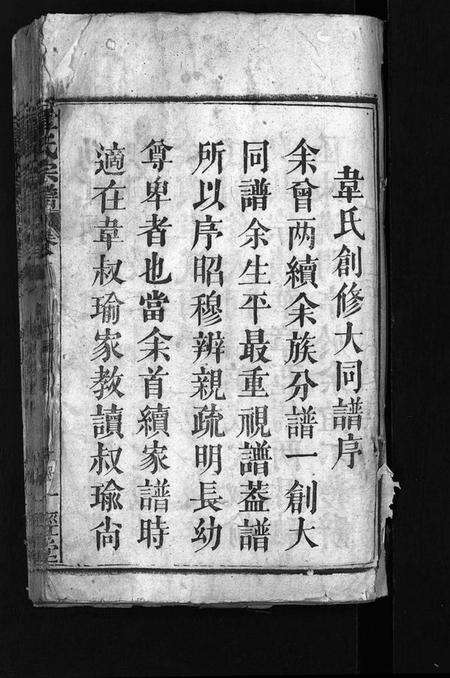 韋氏創修大同譜序
余曾两續余族分譜一創大
同譜余生平最重視譜葢譜
所以序昭穆辨親疏明長幼
尊卑者也當余首續家譜時
適在韋叔瑜家教讀叔瑜尙
氏宗譜
一經堂